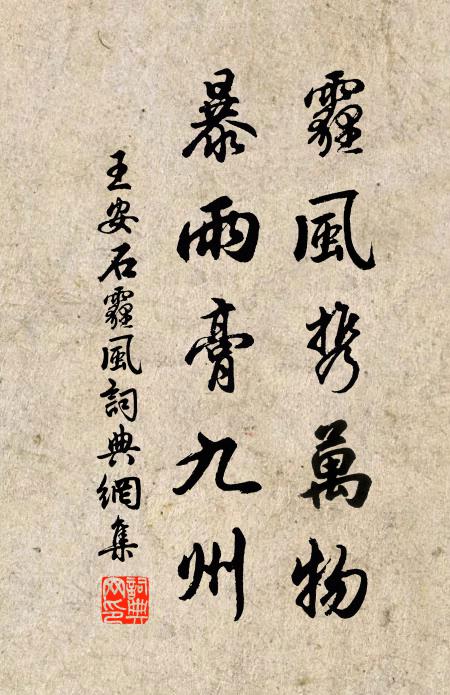 霾風携萬物
暴雨膏九州
王安石霾風詞典網集
詞典網印